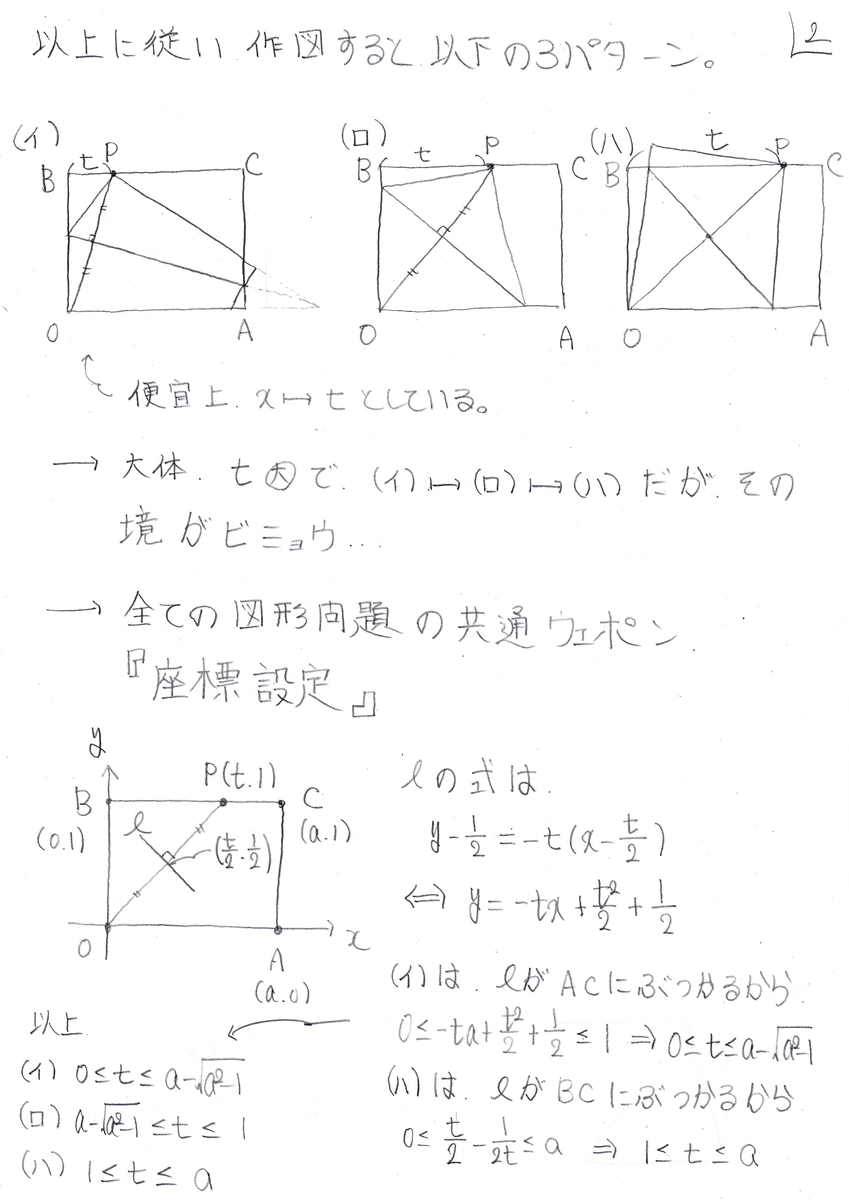 以上に従い 作図すると、以下の3パターン。
2
(イ)
(ロ)
(ハ)
B t P C
B t P C
B t P C
O A
O A
O A
便宜上、x↦tとしている。
→ 大体、t㊛で、(イ)↦(ロ)↦(ハ)だが、その
境がビミョウ...
→ 全ての図形問題の共通ウェポン、
『座標設定』
y
B P(t.1) C
(0.1) ℓ (t/2.1/2) (a.1)
O A x
(a.0)
ℓの式は、
y-1/2=-t(x-t/2)
⇔ y=-tx+t²/2+1/2
(イ)は、ℓがACにぶつかるから、
0≤-ta+t²/2+1/2≤1 ⇒ 0≤t≤a-√(a²-1)
(ハ)は、ℓがBCにぶつかるから
0≤t/2-1/2t≤a ⇒ 1≤t≤a
以上
(イ) 0≤t≤a-√(a²-1)
(ロ) a-√(a²-1)≤t≤1
(ハ) 1≤t≤a